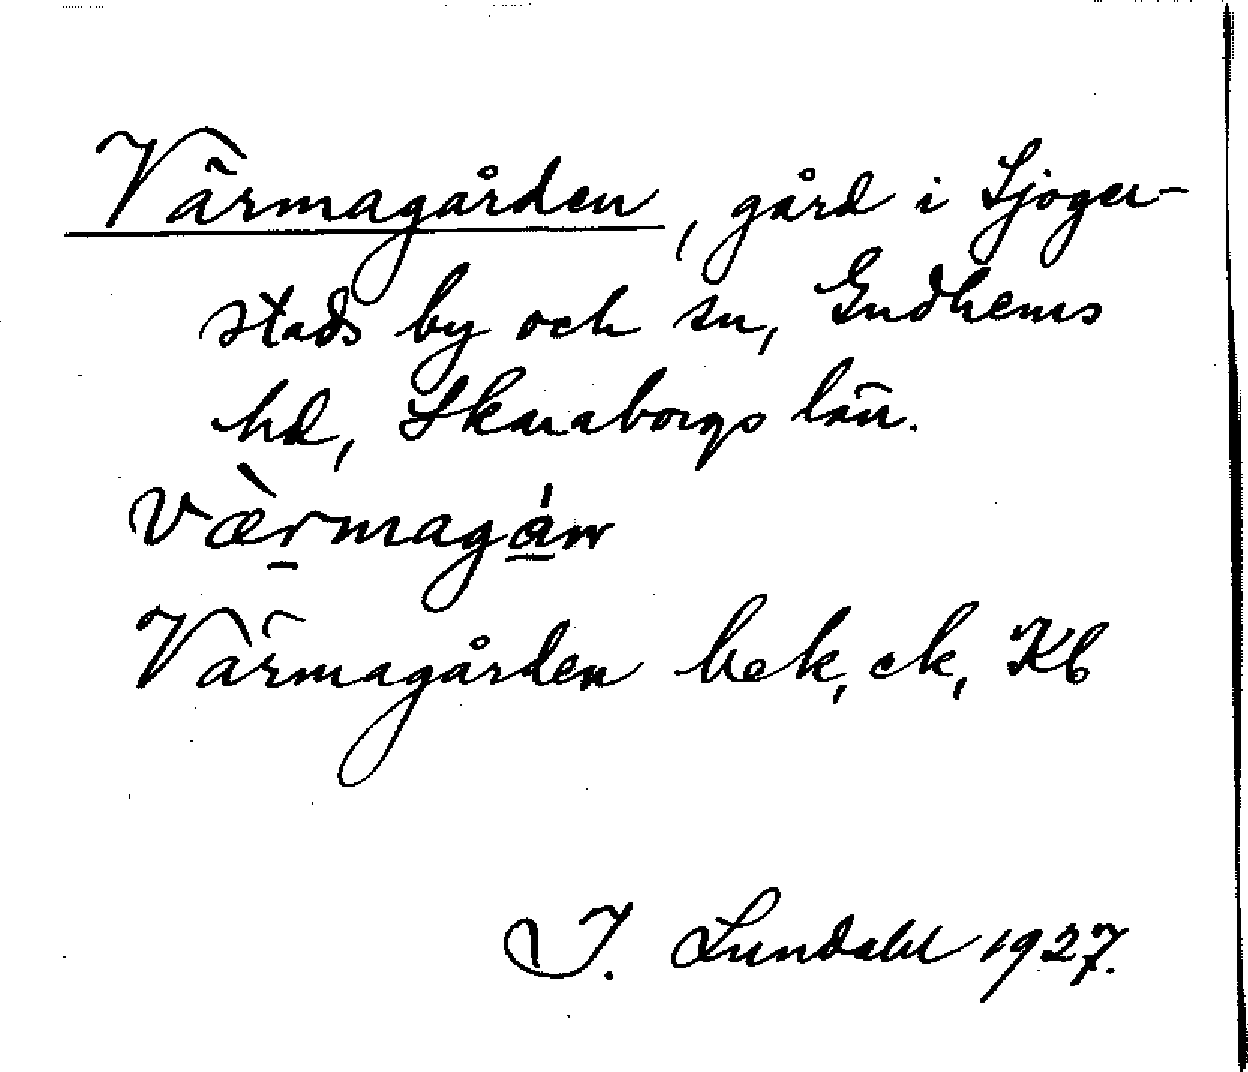 Värmagården, gård i Sjoger-
stads by och sn, Gudhems
hd, Skaraborgs län.
værmagán
Värmagården bek, ek, Kb
I. Lundahl 1927.